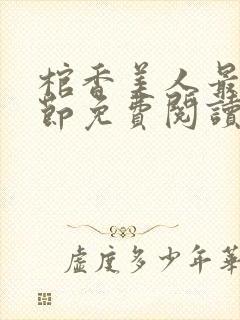 棺香美人最
節免費閱讀
虛度多少年華